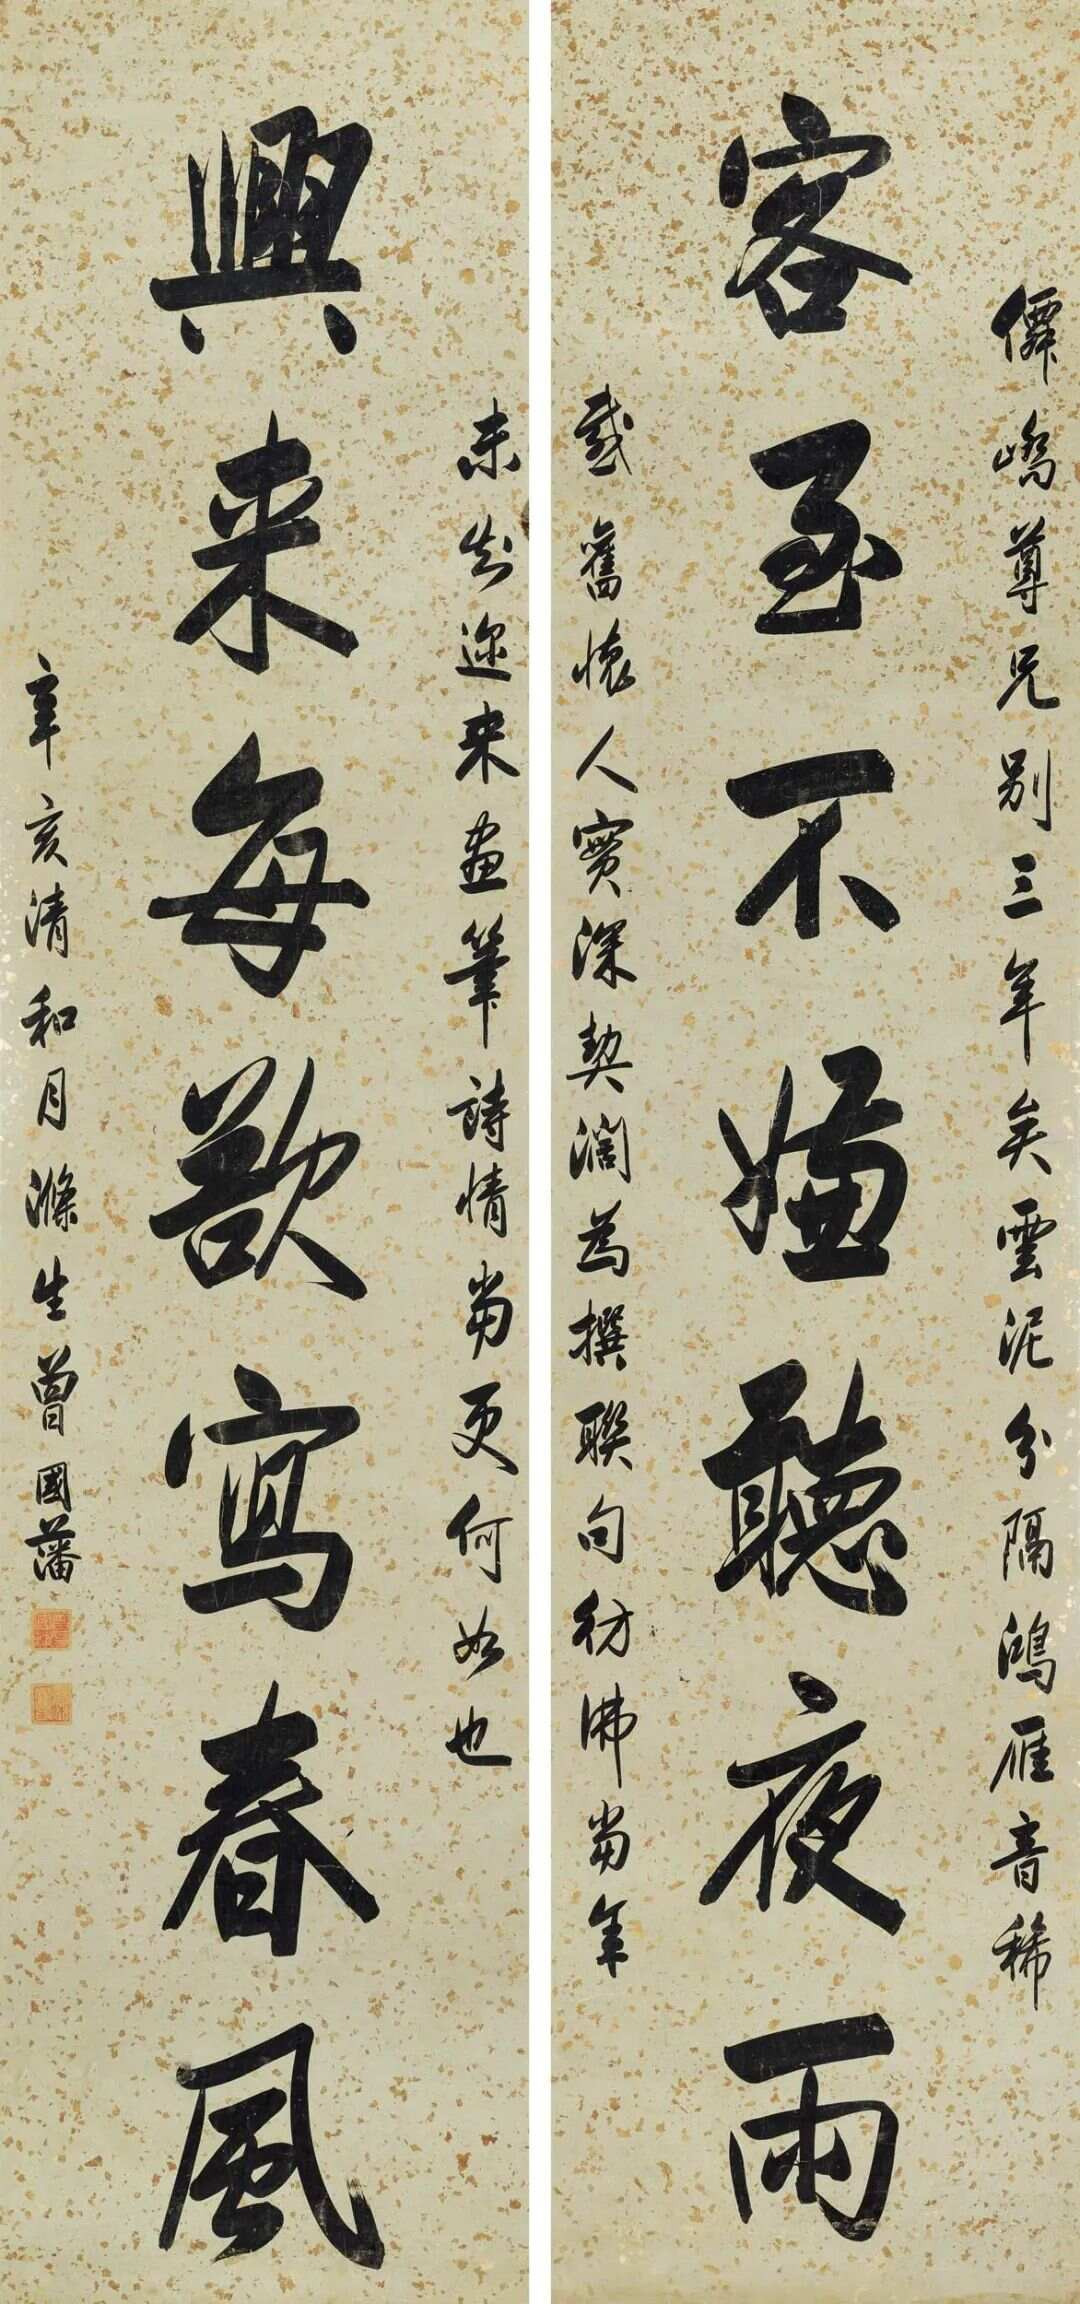 僊嶠尊兄別三年矣雲泥分隔鴻雁音稀
客至不嫌聽夜雨
感舊懷人實深契闊爲撰聯句彷彿當年
未知邇來畫筆詩情當更何如也
興來每欲寫春風
辛亥清和月滌生曾國藩